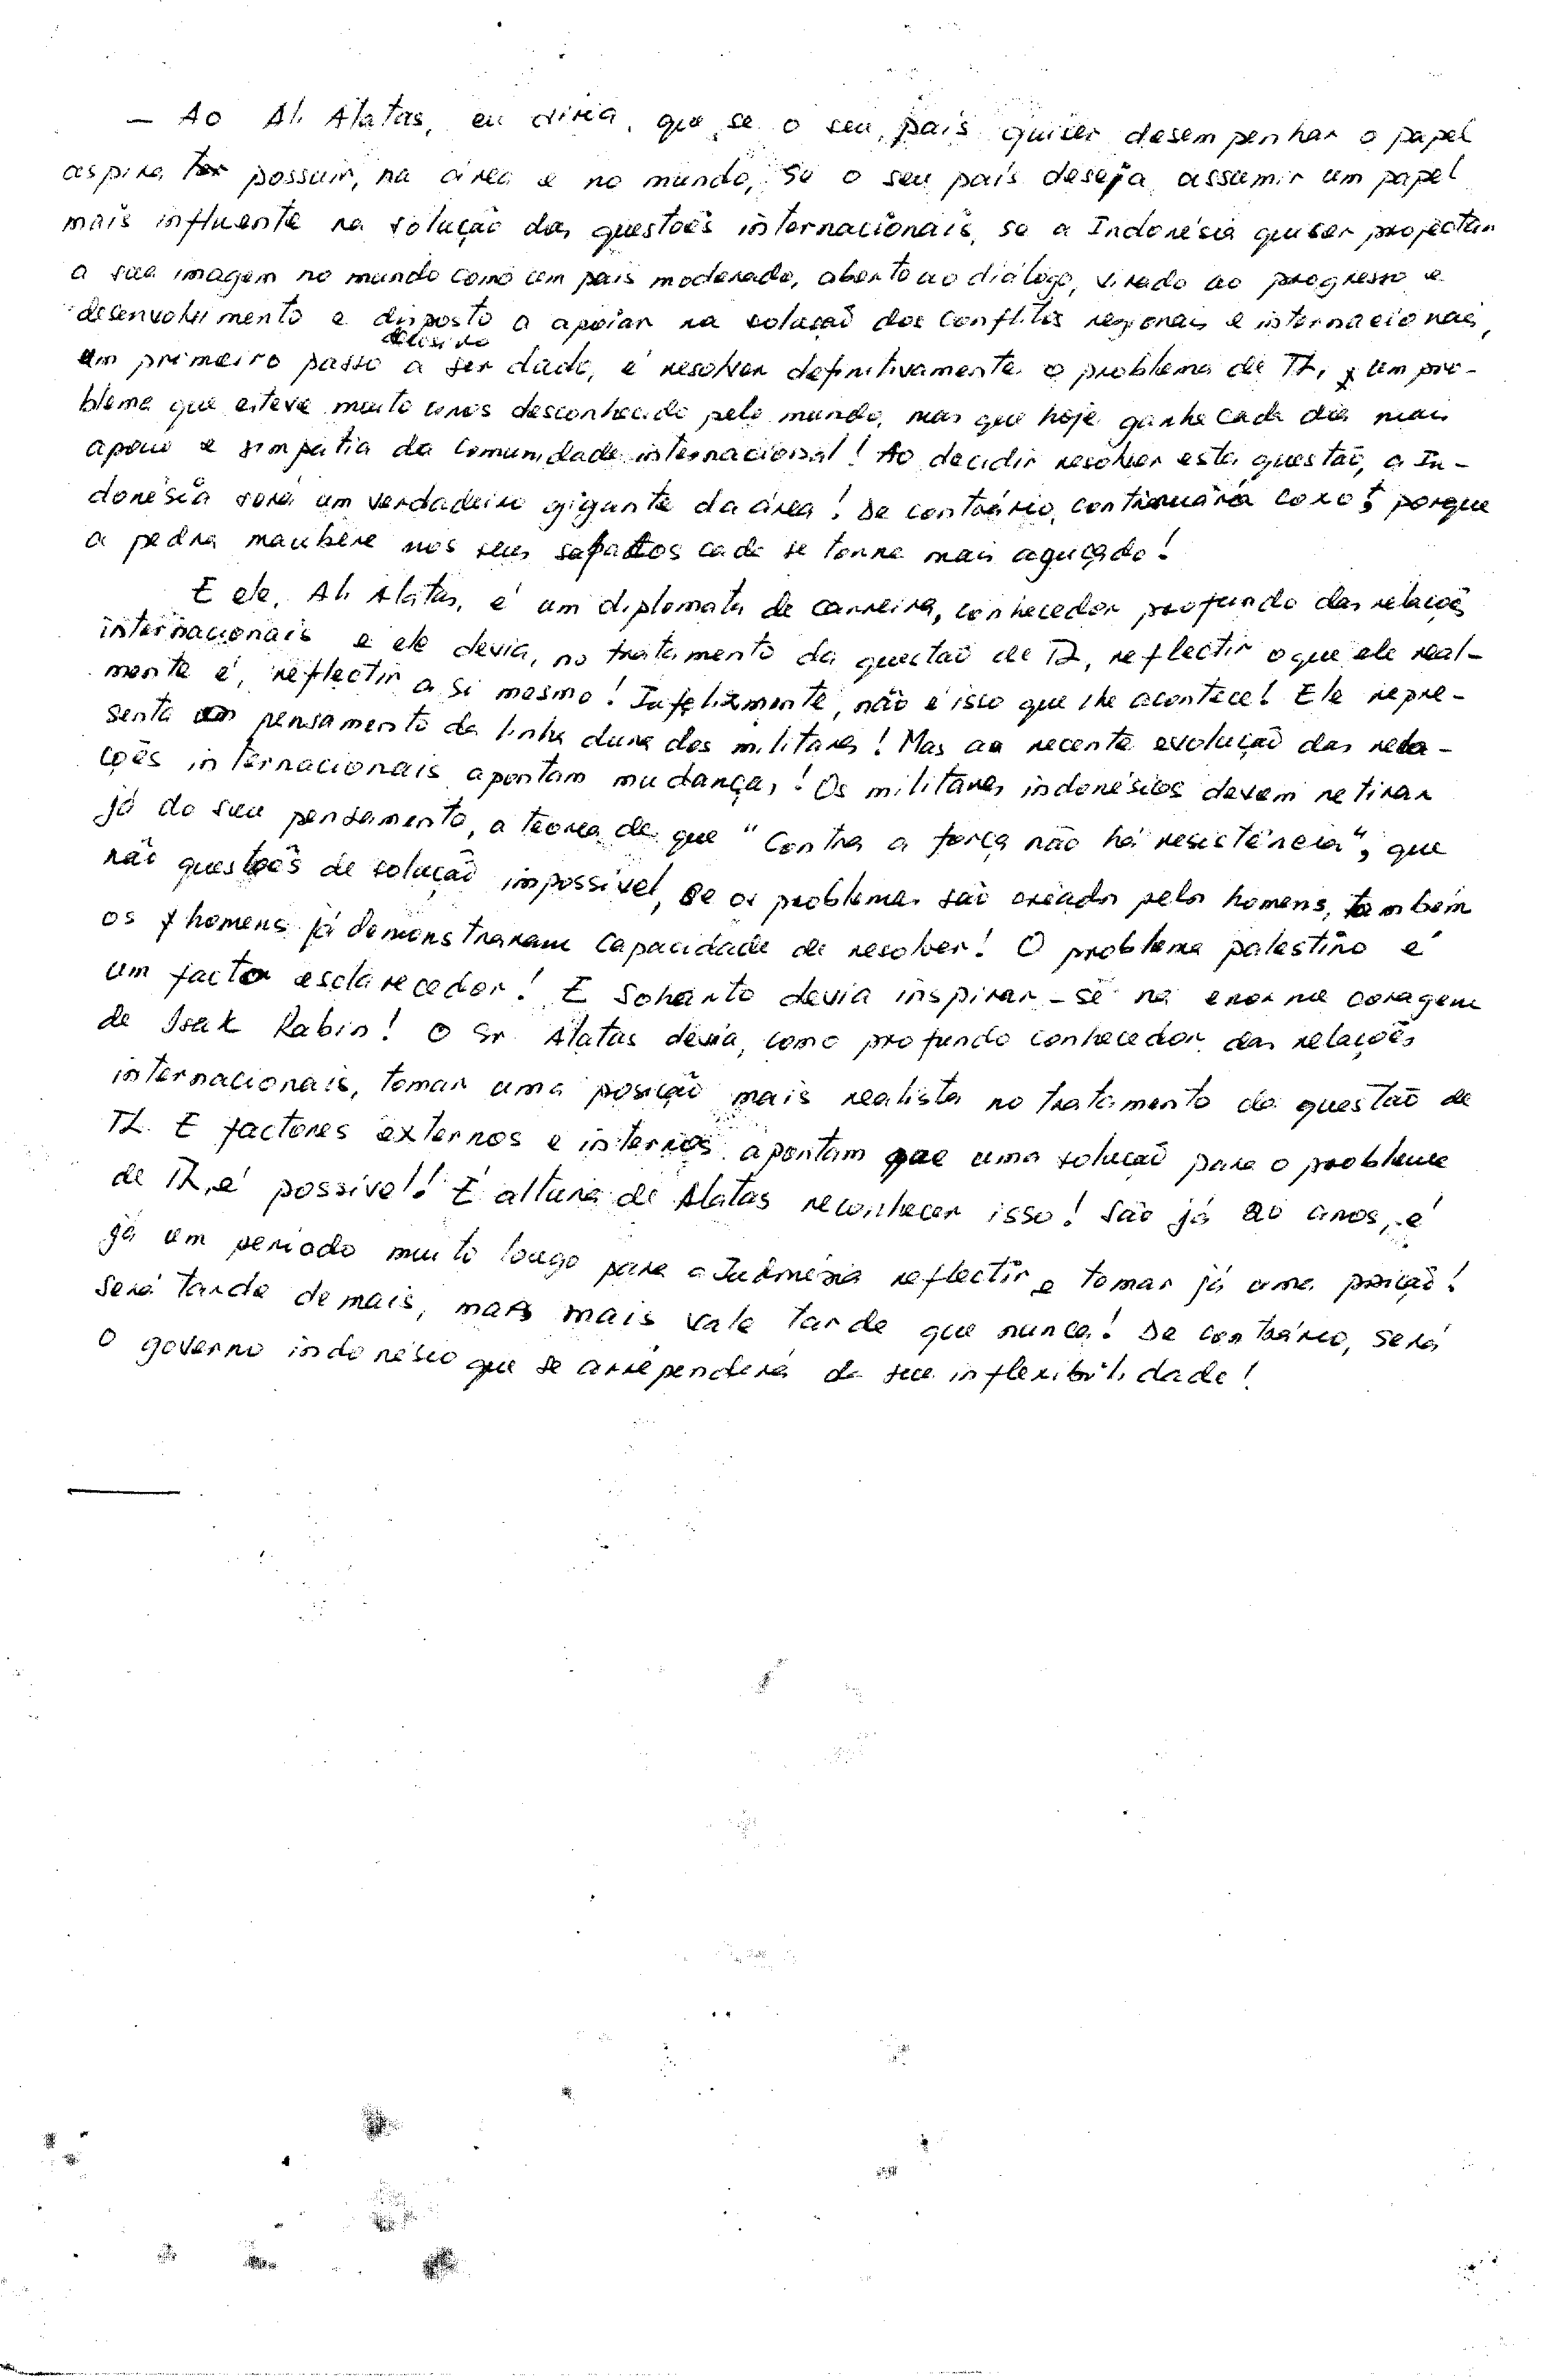 — Ao Ali Alatas, eu diria, que se o seu país quiser desempenhar o papel
aspira possuir, na área e no mundo, se o seu país deseja assumir um papel
mais influente na solução das questoẽs internacionais, se a Indonésia quiser projectar
a sua imagem no mundo como um país moderado, aberto ao diálogo, virado ao progresso e
desenvolvimento e disposto a apoiar na solução dos conflitos regionais e internacionais,
decisivo
um primeiro passo a ser dado, é resolver definitivamente o problema de TL, um pro-
blema que esteve muito anos desconhecido pelo mundo, mas que hoje ganha cada dia mais
apoio e simpatia da comunidade internacional! Ao decidir resolver esta questão, a In-
donésia será um verdadeiro gigante da área! De contrário, continuará coxo, porque
a pedra maubere nos seus sapatos cada se torna mais aguçado!
E ele, Ali Alatas, é um diplomata de carreira, conhecedor profundo das relações
internacionais e ele devia, no tratamento da questão de TL, reflectir o que ele real-
mente é, reflectir a si mesmo! Infelizmente, não é isso que lhe acontece! Ele repre-
senta um pensamento da linha dura dos militares! Mas aa recente evolução das rela-
ções internacionais apontam mudanças! Os militares indonésios devem retirar
já do seu pensamento, a teoria de que "Contra a força não há resistência", que
não questoẽs de solução impossível, se os problemas são criados pelos homens, tambẽm
os homens já demonstraram capacidade de resolver! O problema palestino é
um factor esclarecedor! E Soharto devia inspirar-se na enorme coragem
de Isak Rabin! O Sr. Alatas devia, como profundo conhecedor das relações
internacionais, tomar uma posição mais realista no tratamento da questão de
TL. E factores externos e internos apontam que uma solução para o problema
de TL, é possível! É altura de Alatas reconhecer isso! São já 20 anos, é
já um periodo muito longo para a Indonésia reflectir e tomar já uma posição!
Será tarde demais, mas mais vale tarde que nunca! De contrário, será
o governo indonésio que se arrependerá da sua inflexibilidade!